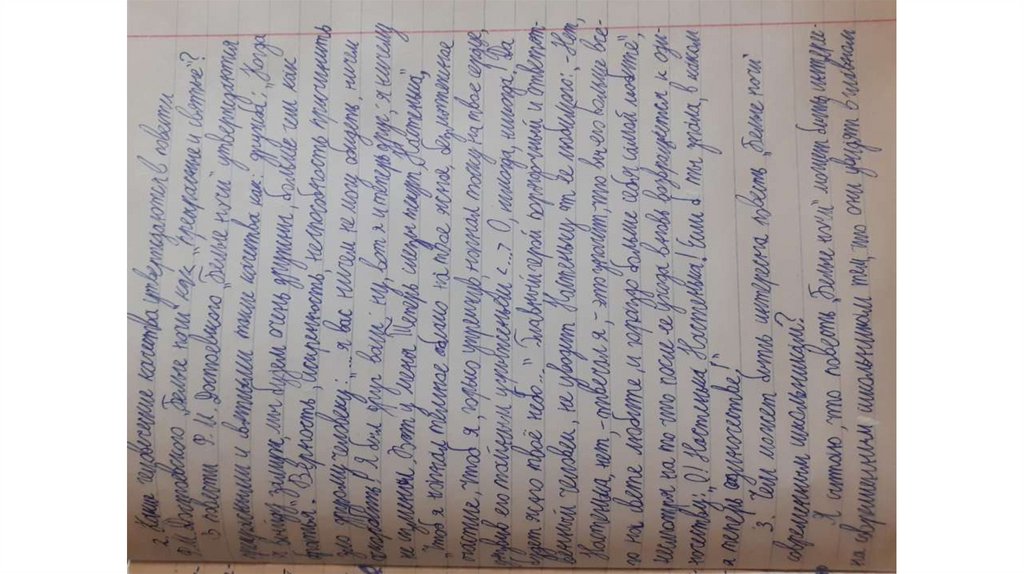 2. Какие человеческие качества утверждаются в повести
Ф.М. Достоевского „Белые ночи" как „прекрасные и светлые"?
В повести Ф. М. Достоевского „Белые ночи" утверждаются
и светлыми такие качества как: дружба: „Когда
я выйду замуж, мы будем очень дружны, больше чем как
братья". Верность, искренность, неспособность причинить
зло другому человеку: „...я вас ничем не могу обидеть, ничем
Я был друг вам; ну, вот я и теперь друг; я ничему
не изменял. Вот у меня теперь слезы текут, Настенька",
„чтоб я нагнал тёмное облако на твое ясное, безмятежное
счастие, чтоб я, горько упрекнув, нагнал тоску на твое сердце,
уязвил его тайным угрызением <...> О, никогда, никогда! Да
будет ясно твоё небо..." Главный герой порядочный и
человек, не уводит Настеньку от её любимого: „-Нет,
Настенька, нет, - отвечал я, - это значит, что вы его больше все-
го на свете любите и гораздо больше себя самой любите",
несмотря на то что после её ухода вновь возвращается к оди-
ночеству: „О! Настенька! Настенька! Если б ты знала, в каком
я теперь одиночестве!"
3. Чем может быть интересна повесть „Белые ночи"
современным школьникам?
Я считаю, что повесть „Белые ночи" может быть интерес-
на современным школьникам тем, что они увидят в главном